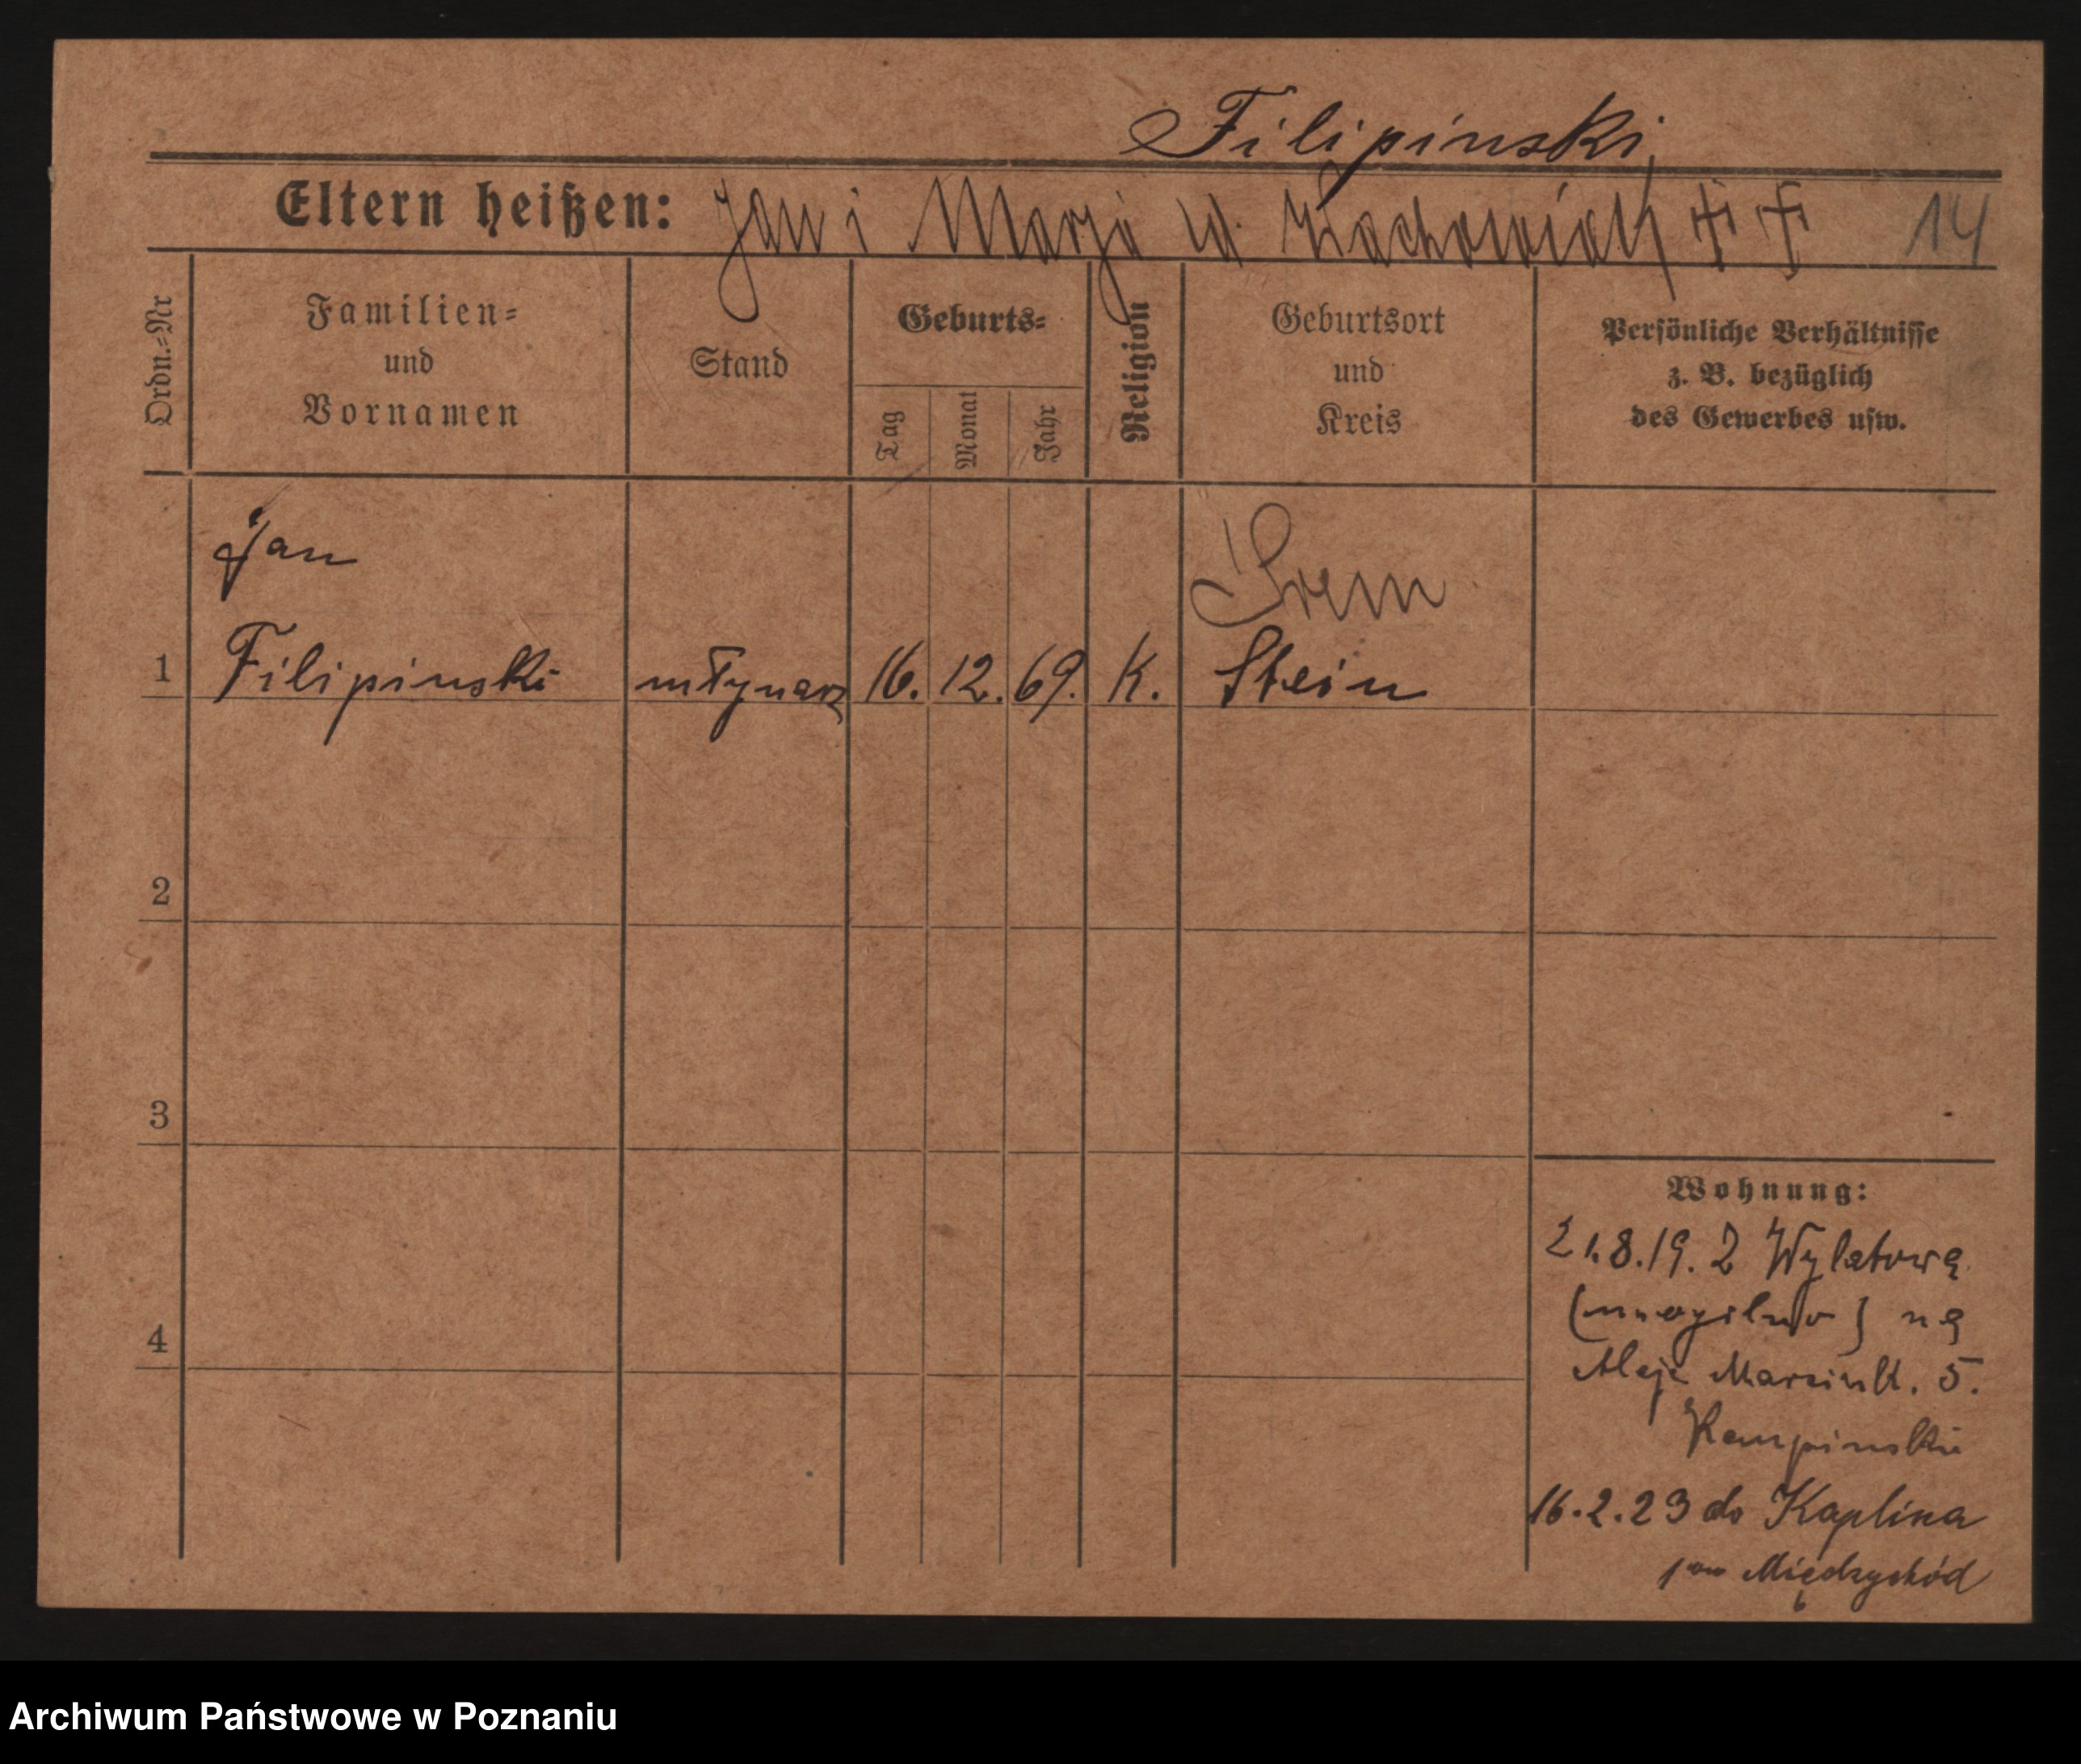 Filipinski
Eltern heißen: Jan i Marja ✝ ✝ 14
Ordn.-Nr
Familien-
und
Vornamen
Stand
Geburts-
Tag
Monat
Jahr
Religion
Geburtsort
und
Kreis
Persönliche Verhältnisse
z. B. bezüglich
des Gewerbes usw.
Jan
Śrem
1 Filipinski młynarz 16. 12. 69. K.
2
3
4
Wohnung:
21.8.19. Z Wylatowa
(mogilno) na
Aleje Marcink. 5.
Kempinski
16.2.23 do Kaplina
pow Międzychód
Archiwum Państwowe w Poznaniu